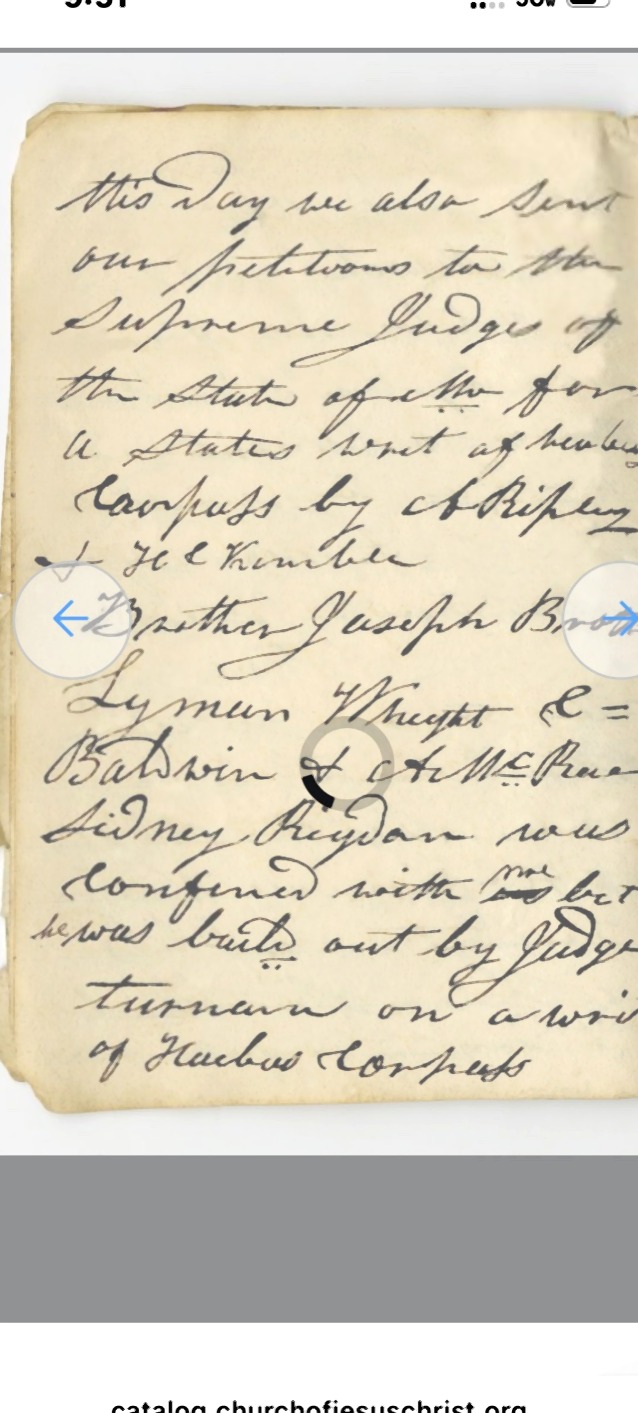 this Day we also sent
our petitions to the
Supreme Judges of
the State of Mo for
a States writ of heabus
Corpuss by A Ripley
& H C Kimble
Brother Joseph Brot
Lyman Wheight C =
Baldwin & A McRae
Sidney Rigdan was
confined with us me but
he was baild out by Judge
turnam on a wri
of Haebus Corpuss
catalog.churchofjesuschrist.org